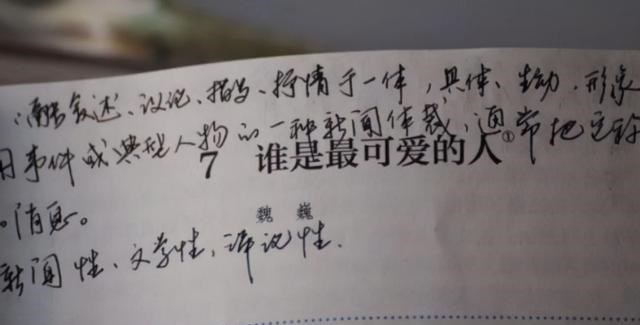 融叙述、议论、描写、抒情于一体,具体、生动、形象
用事件或典型人物的一种新闻体裁,通常把它称
7 谁是最可爱的人①
。消息。
魏 巍
新闻性、文学性、评论性.